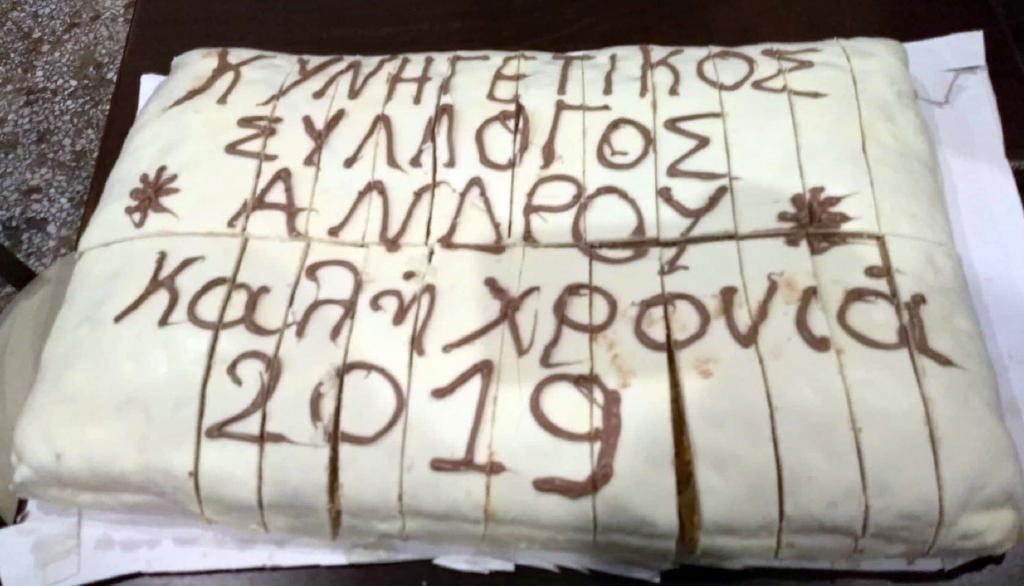 ΚΥΝΗΓΕΤΙΚΟΣ
ΣΥΛΛΟΓΟΣ
* ΑΝΔΡΟΥ *
Καλή χρονιά
2019